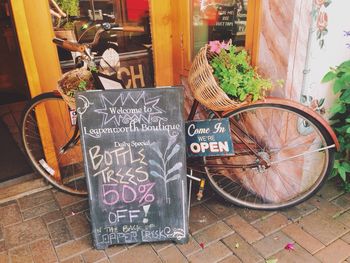 Welcome to
Leapenworth Boutique
Daily Special
BOTTLE
TREES
50%
OFF!
Come in
WE'RE
OPEN